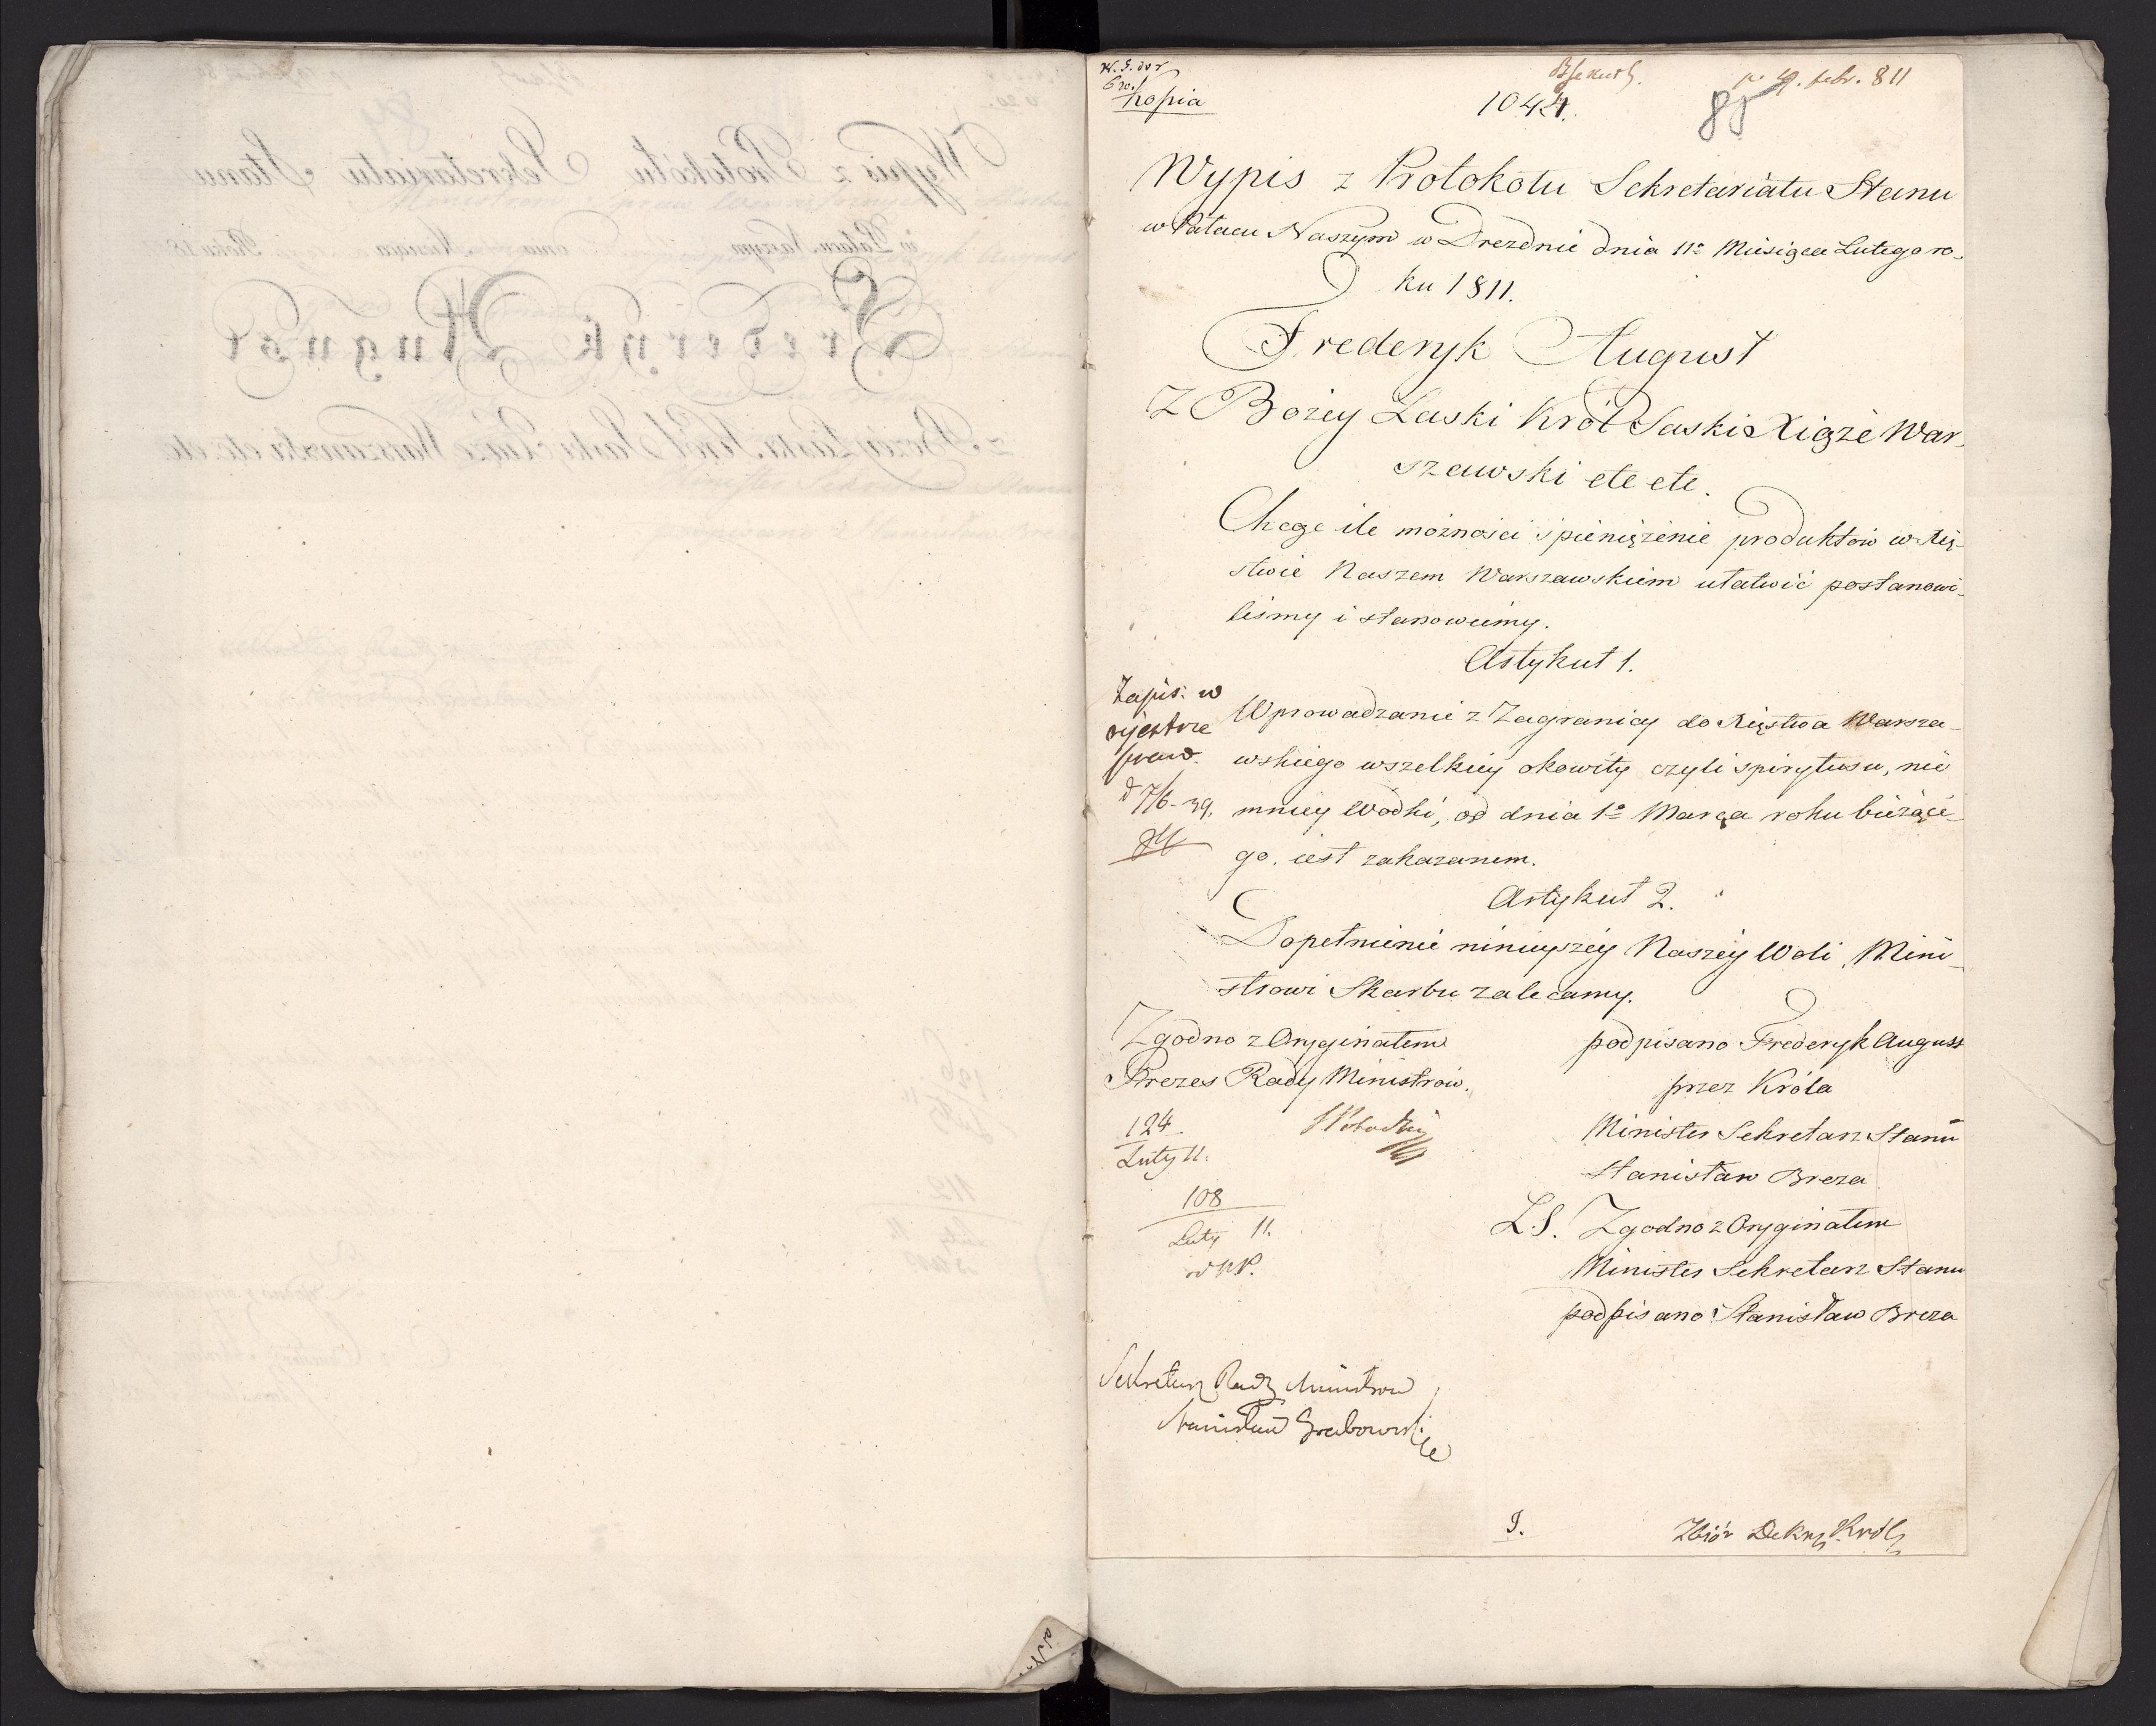 Kopia
1044.
85
p. 19. febr. 811
Wypis z Protokołu Sekretariatu Stanu
w Pałacu Naszym w Dreznie dnia 11º Miesiąca Lutego ro-
ku 1811.
Frederyk August
Z Bożey Łaski Król Saski Xiąże War-
szawski etc etc.
Chcąc ile możności spieniężenie produktów w Xię-
stwie Naszem Warszawskiem ułatwić postanowi-
liśmy i stanowiemy.
Artykuł 1.
Wprowadzanie z Zagranicy do Xięstwa Warsza-
wskiego wszelkiey okowity czyli spirytusu, nie
mniey Wódki, od dnia 1º Marca roku bieżące-
go. iest zakazanem.
Zapis: w
rejestrze
praw.
d 7/6-39.
Artykuł 2.
Dopełnienie ninieyszéy Naszéy Woli, Mini-
strowi Skarbu zalecamy.
Zgodno z Oryginałem
Prezes Rady Ministrów.
124
Luty 11.
108
Luty 11.
podpisano Frederyk August
przez Króla
Minister Sekretarz Stanu
Stanisław Breza
L.S. Zgodno z Oryginałem
Minister Sekretarz Stanu
podpisano Stanisław Breza
Sekretarz Rady Ministrów
Stanisław Grabowski
I.
Zbiór Dekr. Król.